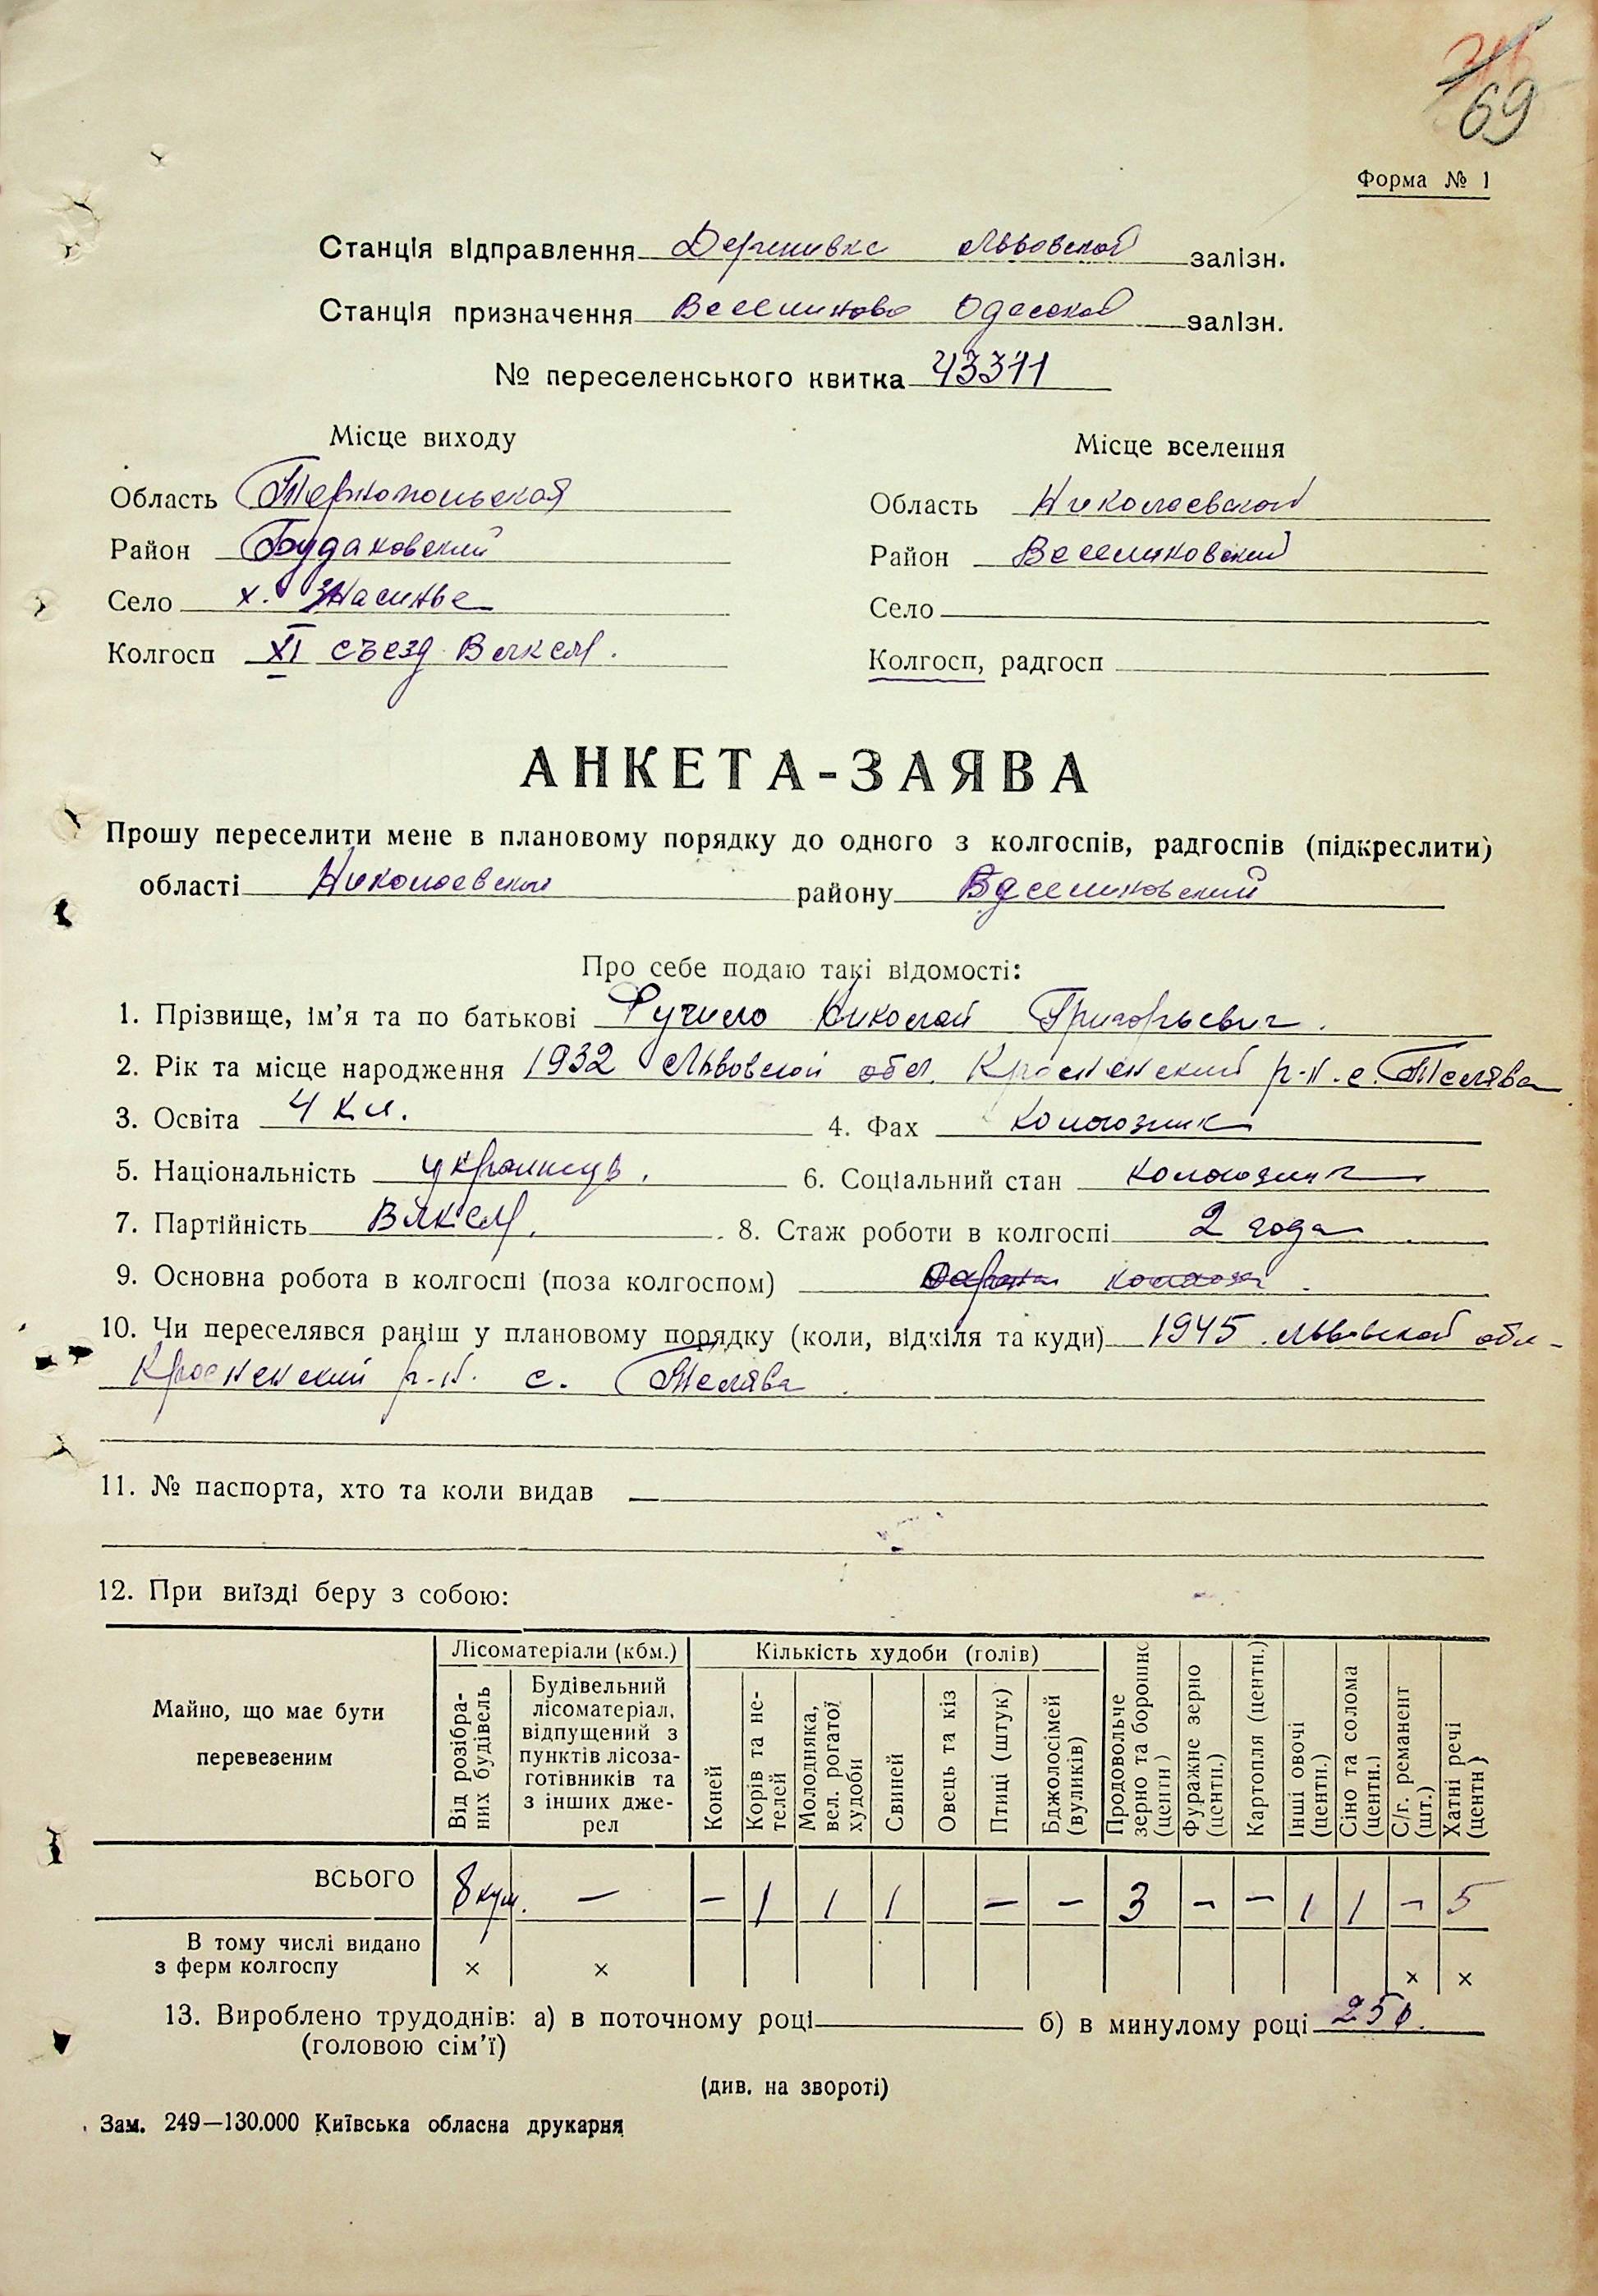 69
Форма № 1
Станція відправлення Дернивка Львовской залізн.
Станція призначення Веселиново Одесской залізн.
№ переселенського квитка 43311
Місце виходу
Місце вселення
Область Тернопольская
Область Николаевской
Район Будановский
Район Веселиновский
Село х.
Село
Колгосп XI съезд ВЛКСМ.
Колгосп, радгосп
АНКЕТА-ЗАЯВА
Прошу переселити мене в плановому порядку до одного з колгоспів, радгоспів (підкреслити)
області Николаевской району Веселиновский
Про себе подаю такі відомості:
1. Прізвище, ім’я та по батькові Фучило Николай Григорьевич.
2. Рік та місце народження 1932 Львовской обл. Кросненский р-н. с. Телява
3. Освіта 4 кл. 4. Фах колхозник
5. Національність украинец. 6. Соціальний стан колхозник
7. Партійність ВЛКСМ. 8. Стаж роботи в колгоспі 2 года
9. Основна робота в колгоспі (поза колгоспом)
10. Чи переселявся раніш у плановому порядку (коли, відкіля та куди) 1945 Львовской обл-
Кросненский р-н. с. Телява
11. № паспорта, хто та коли видав —
12. При виїзді беру з собою:
Майно, що має бути перевезеним
Лісоматеріали (кбм.)
Кількість худоби (голів)
Від розібраних будівель
Будівельний лісоматеріал, відпущений з пунктів лісозаготівників та з інших джерел
Коней
Корів та нетелей
Молодняка, вел. рогатої худоби
Свиней
Овець та кіз
Птиці (штук)
Бджолосімей (вуликів)
Продовольче зерно та борошно (центн)
Фуражне зерно (центн.)
Картопля (центн.)
Інші овочі (центн.)
Сіно та солома (центн.)
С/г. реманент (шт.)
Хатні речі (центн)
ВСЬОГО 8 куб. — — 1 1 1 — — 3 — — 1 1 — 5
В тому числі видано з ферм колгоспу × × × ×
13. Вироблено трудоднів: а) в поточному році б) в минулому році 250.
(головою сім’ї)
(див. на звороті)
Зам. 249—130.000 Київська обласна друкарня